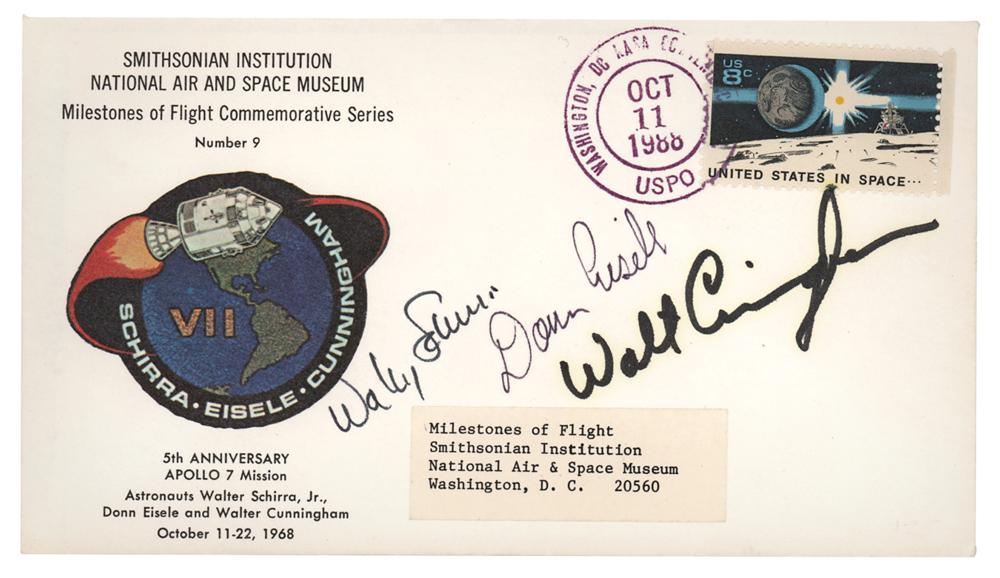 SMITHSONIAN INSTITUTION
NATIONAL AIR AND SPACE MUSEUM
Milestones of Flight Commemorative Series
Number 9
WASHINGTON, DC NASA
OCT
11
1988
USPO
US
8c
UNITED STATES IN SPACE...
VII
SCHIRRA • EISELE • CUNNINGHAM
Wally Schirra
Donn Eisele
Walt Cunningham
Milestones of Flight
Smithsonian Institution
National Air & Space Museum
Washington, D. C. 20560
5th ANNIVERSARY
APOLLO 7 Mission
Astronauts Walter Schirra, Jr.,
Donn Eisele and Walter Cunningham
October 11-22, 1968